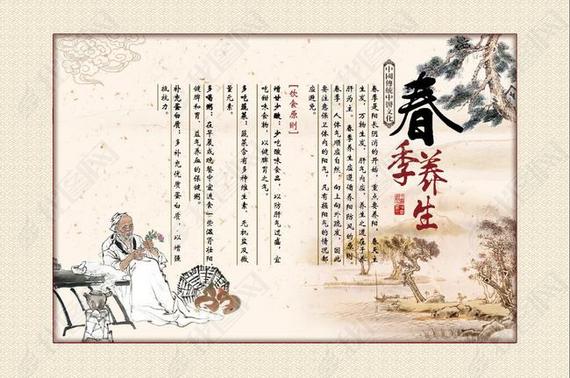 春季养生
中國傳統中醫文化
春季是阳长阴消的开始，重点要养阳。春天主
生发，万物生发，肝气内应，养生之道在于养
肝为主，春季养生应遵循养阳防风的原则。
春季，人体气顺应自然，向上向外疏发，因此
要注意保卫体内的阳气，凡有损阳气的情况都
应避免。
[饮食原则]
增甘少酸：少吃酸味食品，以防肝气过盛，宜
吃甜味食物，以健脾胃之气。
多吃蔬菜：蔬菜含有多种维生素、无机盐及微
量元素。
多喝粥：在早晨或晚餐中宜进食一些温肾壮阳、
健脾和胃、益气养血的保健粥。
补充蛋白质：多补充优质蛋白质，以增强
抵抗力。